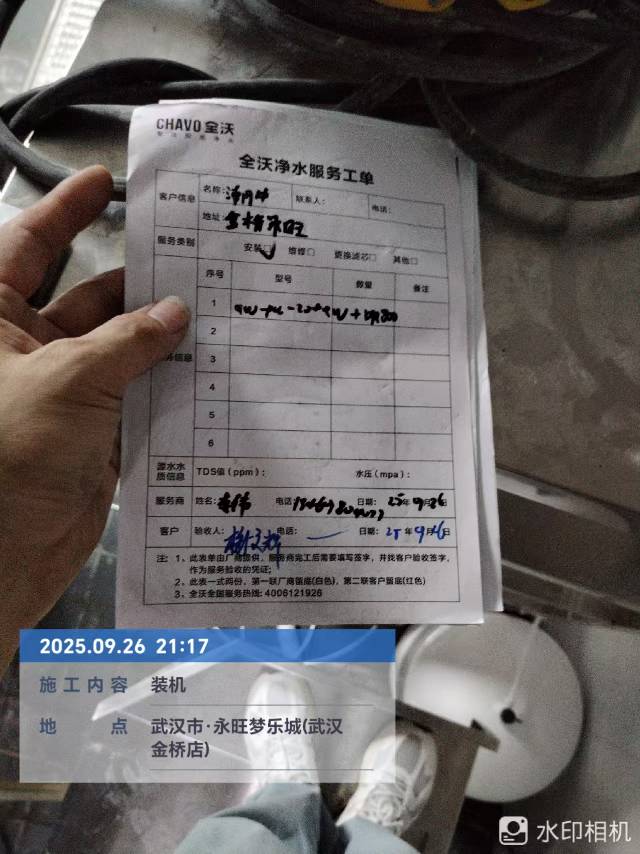 CHAVO 全沃
全沃净水服务工单
客户信息 名称: 联系人: 电话:
地址: 金桥永旺
服务类别 安装☑ 维修□ 更换滤芯□ 其他□
序号 型号 数量 备注
1
2
3
信息
4
5
6
源水水质信息 TDS值(ppm): 水压(mpa):
服务商 姓名: 电话 日期: 25年9月26
客户 验收人: 电话: — 日期: 25年9月26日
注: 1、此表单由厂商提供，服务商完工后需要填写签字，并找客户验收签字，
作为服务验收的凭证;
2、此表一式两份，第一联厂商留底(白色)，第二联客户留底(红色)
3、全沃全国服务热线: 4006121926
2025.09.26 21:17
施工内容 装机
地点 武汉市·永旺梦乐城(武汉
金桥店)
水印相机